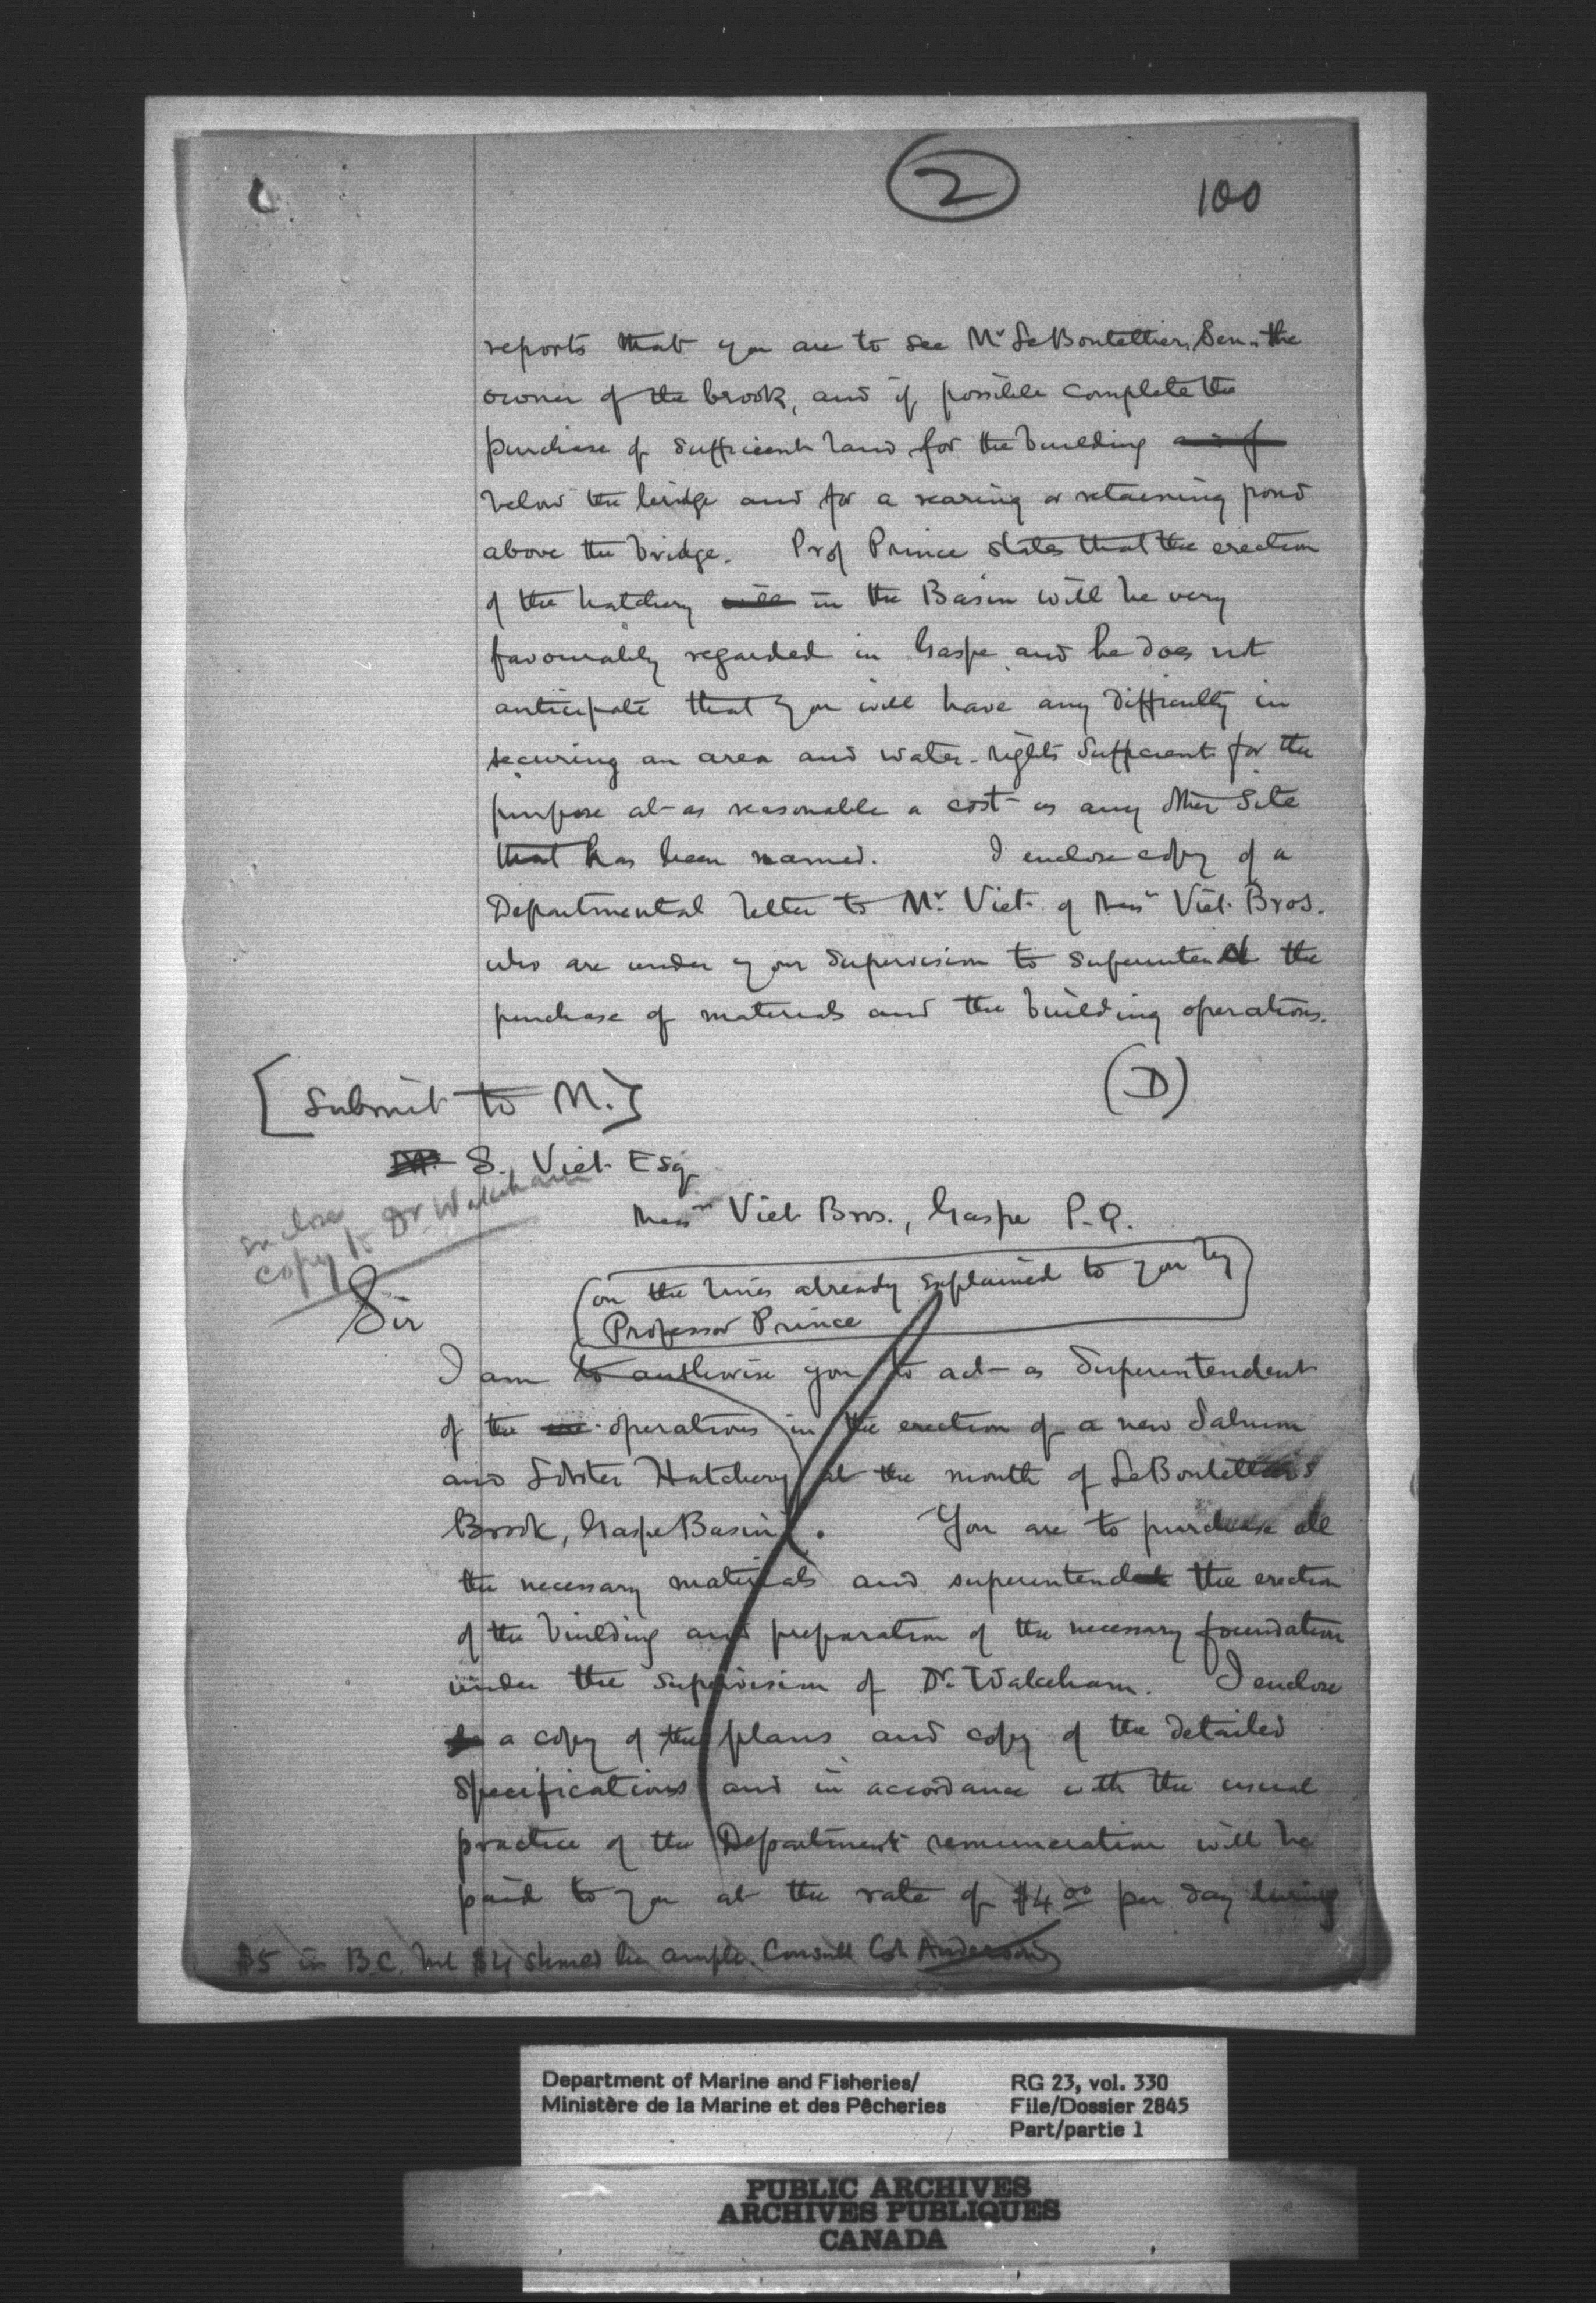 2
100
reports that you are to see Mr LeBoutellier, Sen. the
owner of the brook, and if possible complete the
purchase of sufficient land for the building
below the bridge and for a rearing or retaining pond
above the bridge. Prof Prince states that the erection
of the hatchery will in the Basin will be very
favourably regarded in Gaspe and he does not
anticipate that you will have any difficulty in
securing an area and water-rights sufficient for the
purpose at as reasonable a cost as any other site
that has been named. I enclose copy of a
Departmental letter to Mr. Viet of Messrs Viet Bros.
who are under your supervision to superintend the
purchase of materials and the building operations.
(D)
[Submit to M.]
S. Viet Esq
enclose
copy to Dr Wakeham
Messrs Viet Bros., Gaspe P.Q.
on the lines already explained to you by
Professor Prince
Sir
I am to authorise you to act as Superintendent
of the operations in the erection of a new Salmon
and Lobster Hatchery at the mouth of LeBoutellier's
Brook, Gaspe Basin. You are to purchase all
the necessary materials and superintend the erection
of the building and preparation of the necessary foundation
under the supervision of Dr. Wakeham. I enclose
a copy of the plans and copy of the detailed
specifications and in accordance with the usual
practice of the Department remuneration will be
paid to you at the rate of $4.00 per day during
$5 in B.C. but $4 should be ample. Consult Col Anderson
Department of Marine and Fisheries/
Ministère de la Marine et des Pêcheries
RG 23, vol. 330
File/Dossier 2845
Part/partie 1
PUBLIC ARCHIVES
ARCHIVES PUBLIQUES
CANADA